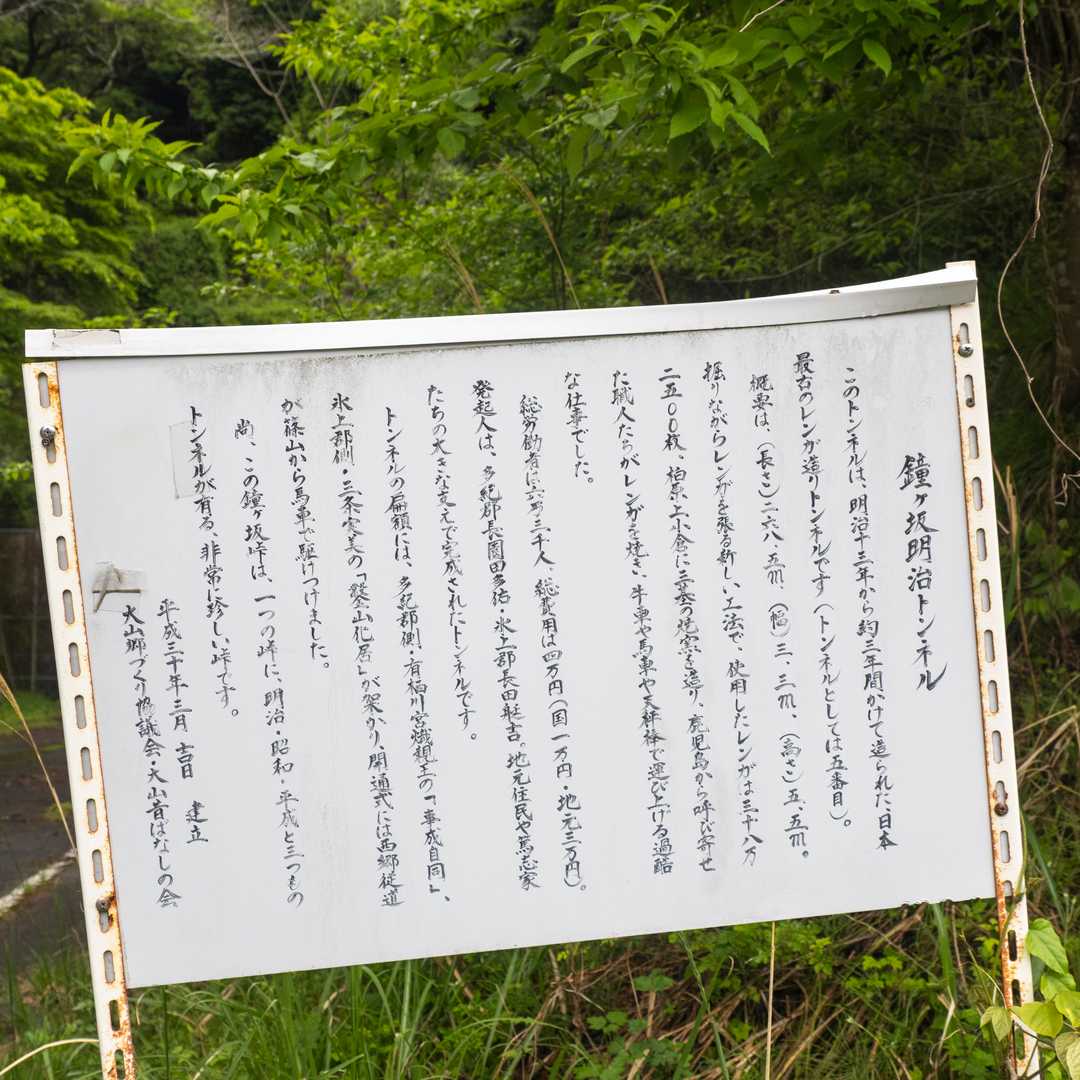 鐘ヶ坂明治トンネル
このトンネルは、明治十三年から約三年間かけて造られた、日本
最古のレンガ造りトンネルです(トンネルとしては五番目)。
概要は、(長さ)二六八・五m、(幅)三・三m、(高さ)五・五m。
掘りながらレンガを張る新しい工法で、使用したレンガは三十八万
二五〇〇枚、柏原上小倉に三基の焼窯を造り、鹿児島から呼び寄せ
た職人たちがレンガを焼き、牛車や馬車や天秤棒で運び上げる過酷
な仕事でした。
総労働者は六万三千人、総費用は四万円(国一万円・地元三万円)。
発起人は、多紀郡長園田多祐・氷上郡長田艇吉。地元住民や篤志家
たちの大きな支えで完成されたトンネルです。
トンネルの扁額には、多紀郡側・有栖川宮熾親王の「事成自同」、
氷上郡側・三条実美の「鑿山化居」が架かり、開通式には西郷従道
が篠山から馬車で駆けつけました。
尚、この鐘ヶ坂峠は、一つの峠に、明治・昭和・平成と三つもの
トンネルが有る、非常に珍しい峠です。
平成三十年三月 吉日 建立
大山郷づくり協議会・大山昔ばなしの会